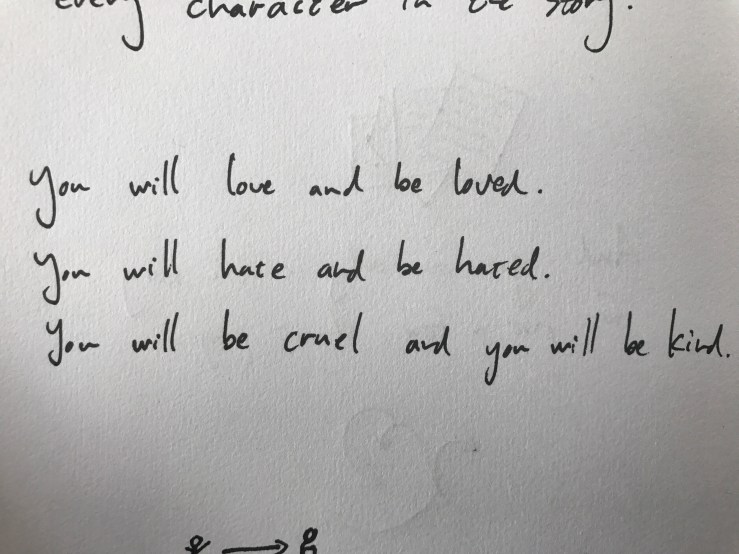 every character in the story.
You will love and be loved.
You will hate and be hated.
You will be cruel and you will be kind.